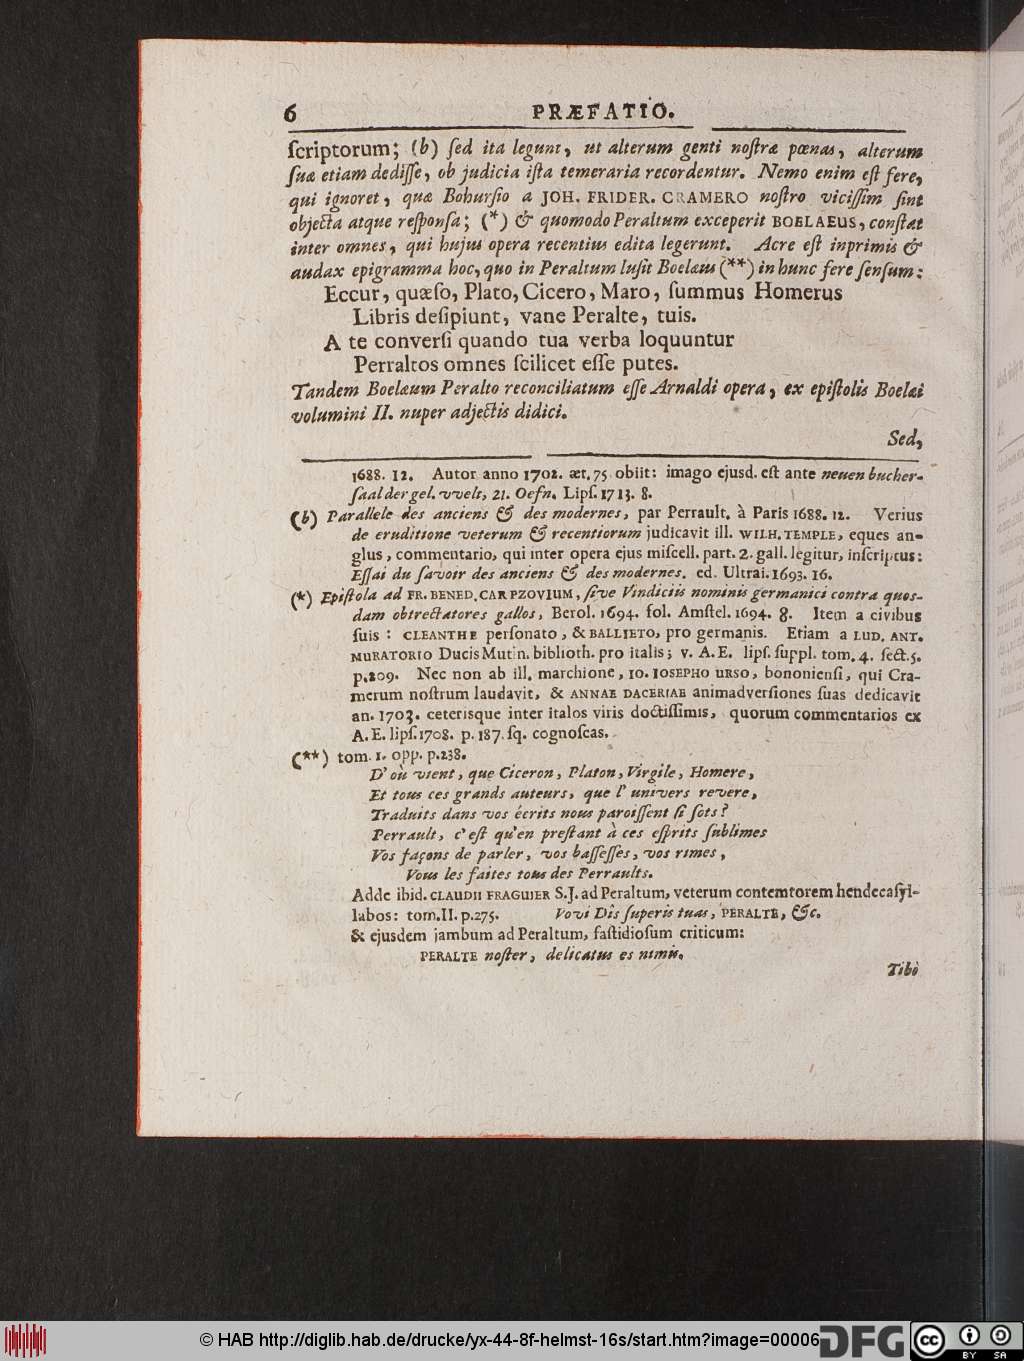 6 PRÆFATIO.
ſcriptorum; (b) ſed ita legunt, ut alterum genti noſtræ pœnas, alterum
ſuæ etiam dediſſe, ob judicia iſta temeraria recordentur. Nemo enim eſt fere,
qui ignoret, quæ Bohurſio a JOH. FRIDER. CRAMERO noſtro viciſſim ſint
objecta atque reſponſa; (*) & quomodo Peraltum exceperit BOELAEUS, conſtat
inter omnes, qui hujus opera recentius edita legerunt. Acre eſt inprimis &
audax epigramma hoc, quo in Peraltum luſit Boelæus (**) in hunc fere ſenſum:
Eccur, quæſo, Plato, Cicero, Maro, ſummus Homerus
Libris deſipiunt, vane Peralte, tuis.
A te converſi quando tua verba loquuntur
Perraltos omnes ſcilicet eſſe putes.
Tandem Boelæum Peralto reconciliatum eſſe Arnaldi opera, ex epiſtolis Boelæi
volumini II. nuper adjectis didici.
Sed,
1688. 12. Autor anno 1702. æt. 75. obiit: imago ejusd. eſt ante neuen bucher-
ſaal der gel. vvelt, 21. Oefn. Lipſ. 1713. 8.
(b) Parallele des anciens & des modernes, par Perrault. à Paris 1688. 12. Verius
de eruditione veterum & recentiorum judicavit ill. WILH. TEMPLE, eques an-
glus, commentario, qui inter opera ejus miſcell. part. 2. gall. legitur, inſcriptus:
Eſſai du ſavoir des anciens & des modernes. ed. Ultrai. 1693. 16.
(*) Epiſtola ad FR. BENED. CARPZOVIUM, ſive Vindiciis nominis germanici contra quos-
dam obtrectatores gallos, Berol. 1694. fol. Amſtel. 1694. 8. Item a civibus
ſuis: CLEANTHE perſonato, & BALLIETO, pro germanis. Etiam a LUD. ANT.
MURATORIO Ducis Mutin. biblioth. pro italis; v. A. E. lipſ. ſuppl. tom. 4. ſect. 5.
p. 209. Nec non ab ill. marchione, IO. IOSEPHO URSO, bononienſi, qui Cra-
merum noſtrum laudavit, & ANNAE DACERIAE animadverſiones ſuas dedicavit
an. 1703. ceterisque inter italos viris doctiſſimis, quorum commentarios ex
A. E. lipſ. 1708. p. 187. ſq. cognoſcas.
(**) tom. 1. opp. p. 238.
D' où vient, que Ciceron, Platon, Virgile, Homere,
Et tous ces grands auteurs, que l' univers revere,
Traduits dans vos écrits nous paroiſſent ſi ſots?
Perrault, c'eſt qu'en preſtant à ces eſprits ſublimes
Vos façons de parler, vos baſſeſſes, vos rimes,
Vous les faites tous des Perraults.
Adde ibid. CLAUDII FRAGUIER S.J. ad Peraltum, veterum contemtorem hendecaſyl-
labos: tom. II. p. 275. Vovi Dîs ſuperis tuas, PERALTE, &c.
& ejusdem jambum ad Peraltum, faſtidioſum criticum:
PERALTE noſter, delicatus es nimis.
Tibi
© HAB http://diglib.hab.de/drucke/yx-44-8f-helmst-16s/start.htm?image=00006
DFG
cc BY SA